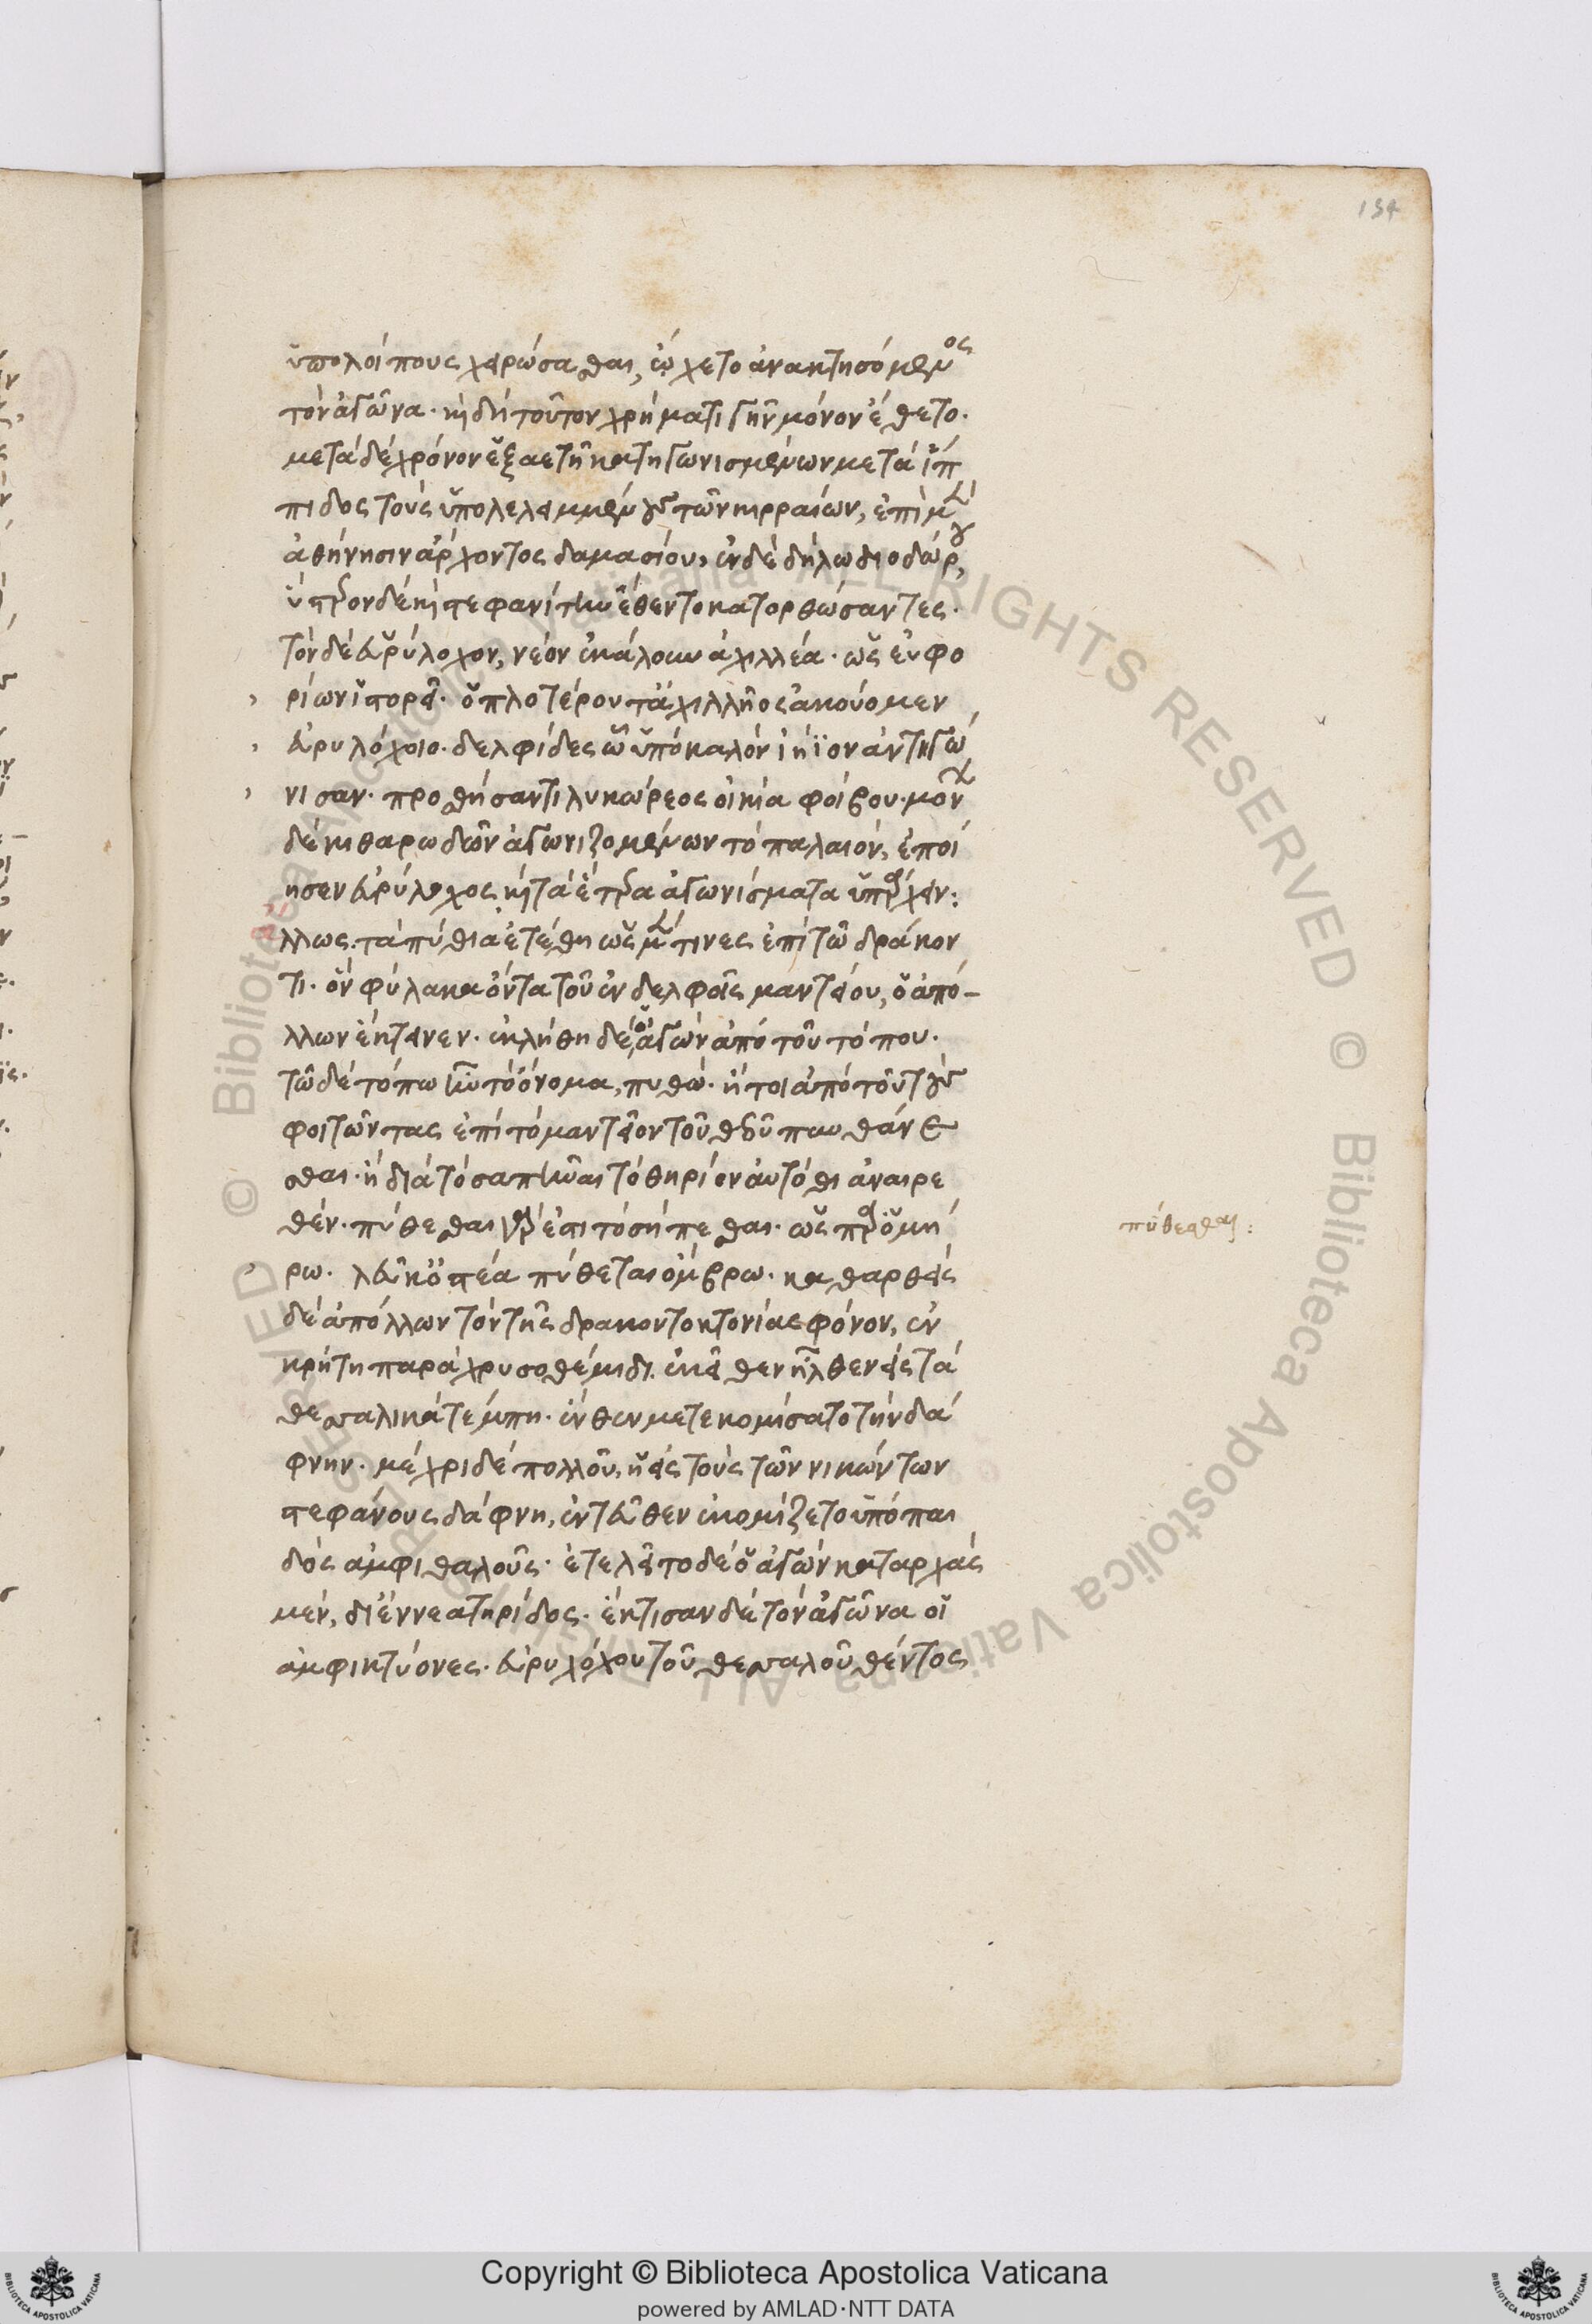 134
ὑπολοίπους χειρώσασθαι, ᾤχετο ἀνακτησόμενος
τὸν ἀγῶνα· καὶ δὴ τοῦτον χρηματιστὴν μόνον ἔθετο·
μετὰ δὲ χρόνον ἑξαετῆ καταγωνισμένων μετὰ ἱπ
πιδος τοὺς ὑπολελειμμένους τῶν κιρραίων, ἐπὶ μὲν
ἀθήνησιν ἄρχοντος δαμασίου, ἐν δὲ δήλω διοδώρου,
ὕστερον δὲ καὶ στεφανίτην ἔθεντο κατορθώσαντες·
τὸν δὲ εὐρύλοχον, νέον ἐκάλουν ἀχιλλέα· ὡς εὐφο
ρίων ἱστορεῖ· ὁπλοτέρου τ' ἀχιλλῆος ἀκούομεν
εὐρυλόχοιο· δελφίδες ᾧ ὑπὸ καλὸν ἰήϊον ἀντηγώ
νισαν· προθήσαντι λυκωρέος οἰκία φοίβου· μόνων
δὲ κιθαρωδῶν ἀγωνιζομένων τὸ παλαιὸν, ἐποί
ησεν εὐρύλοχος καὶ τὰ ἕτερα ἀγωνίσματα ὑπάρχειν:
λλως· τὰ πύθια ἐτέθη ὡς μέν τινες ἐπὶ τῶ δράκον
τι· ὃν φύλακα ὄντα τοῦ ἐν δελφοῖς μαντείου, ὁ ἀπό-
λλων ἔκτεινεν· ἐκλήθη δὲ ὁ ἀγὼν ἀπὸ τοῦ τόπου·
τῶ δὲ τόπω ἦν τὸ ὄνομα, πυθώ· ἤτοι ἀπὸ τοῦ τοὺς
φοιτῶντας ἐπὶ τὸ μαντεῖον τοῦ θεοῦ πυνθάνε
σθαι· ἢ διὰ τὸ σαπῆναι τὸ θηρίον αὐτόθι ἀναιρε
θέν· πύθεσθαι γάρ ἐστι τὸ σήπεσθαι· ὡς παρ' ὁμή
ρω· λεύκ' ὀστέα πύθεται ὄμβρω· καθαρθεὶς
δὲ ἀπόλλων τὸν τῆς δρακοντοκτονίας φόνον, ἐν
κρήτη παρὰ χρυσοθέμιδι· ἐκεῖθεν ἦλθεν εἰς τὰ
θεσσαλικὰ τέμπη· ἔνθεν μετεκομίσατο τὴν δά
φνην· μέχρι δὲ πολλοῦ, ἡ εἰς τοὺς τῶν νικώντων
στεφάνους δάφνη, ἐντεῦθεν ἐκομίζετο ὑπὸ παι
δὸς ἀμφιθαλοῦς· ἐτελεῖτο δὲ ὁ ἀγὼν καταρχὰς
μέν, δι' ἐννεατηρίδος· ἔκτισαν δὲ τὸν ἀγῶνα οἱ
ἀμφικτύονες· εὐρυλόχου τοῦ θεσσαλοῦ θέντος
πύθεσθαι:
Copyright © Biblioteca Apostolica Vaticana
powered by AMLAD·NTT DATA